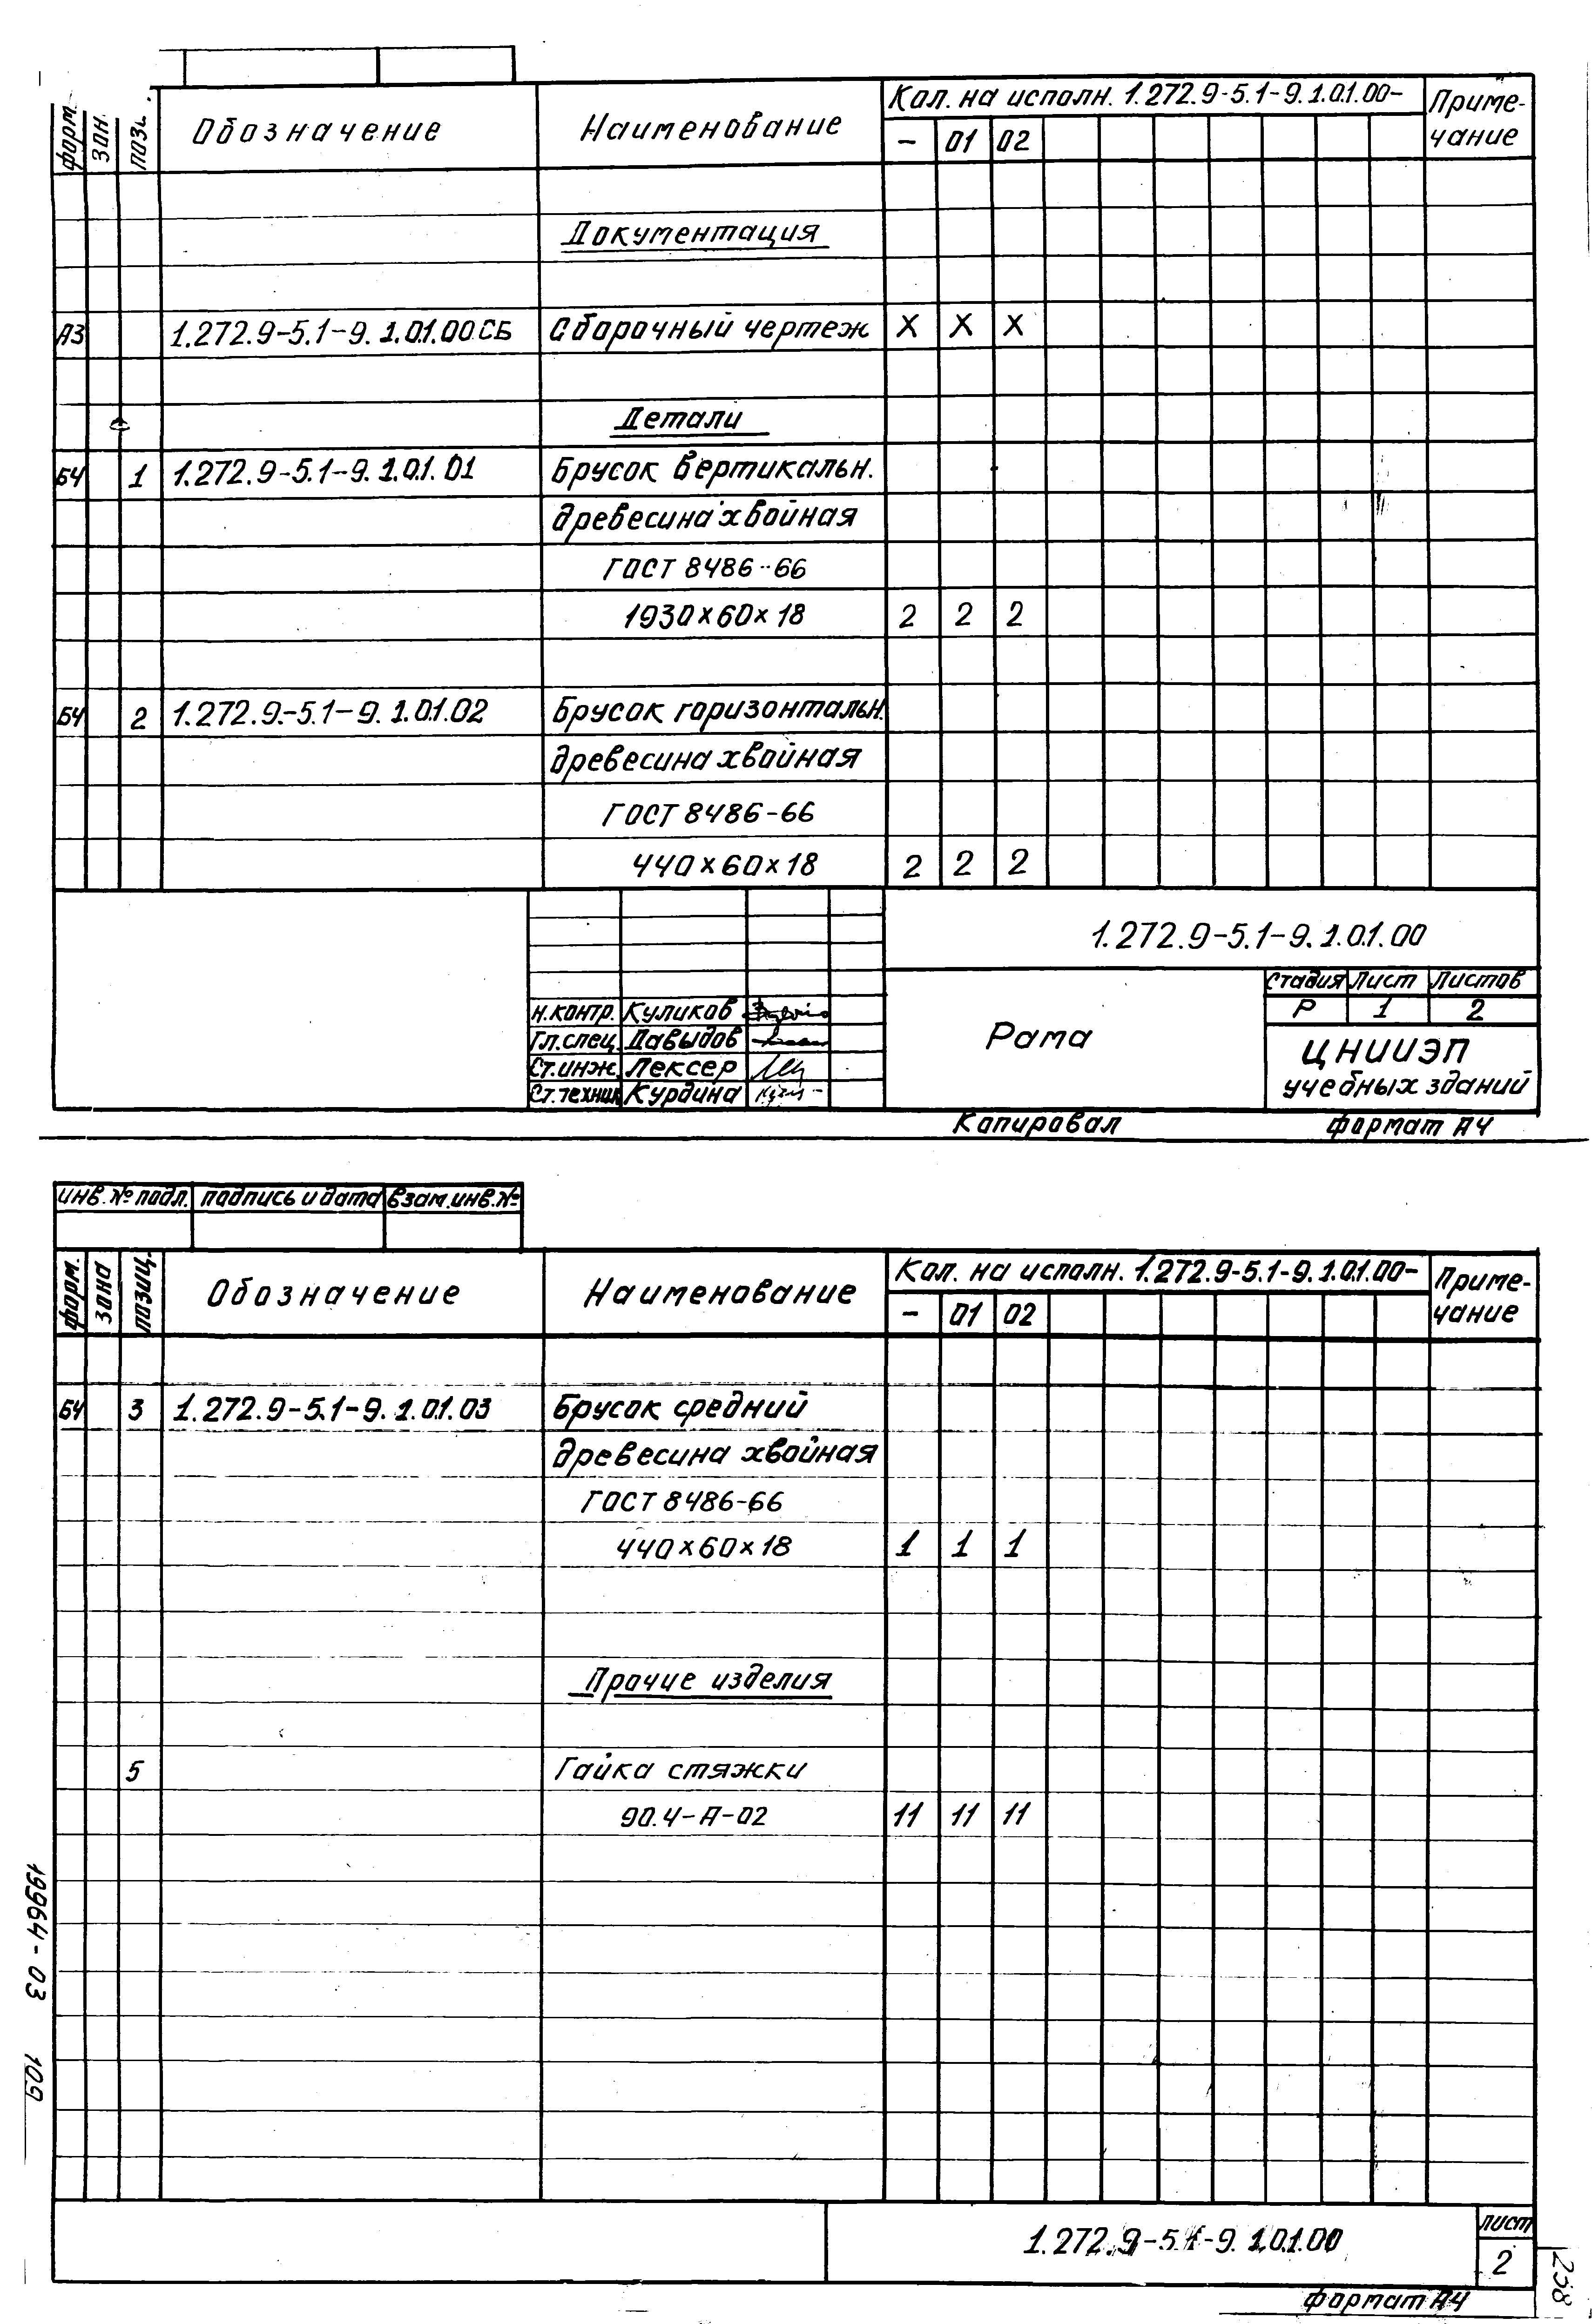 форм. зон. поз. Обозначение Наименование Кол. на исполн. 1.272.9-5.1-9.1.01.00- Приме-
чание
- 01 02
Документация
А3 1.272.9-5.1-9.1.01.00СБ Сборочный чертеж X X X
Детали
БЧ 1 1.272.9-5.1-9.1.01.01 Брусок вертикальн.
древесина хвойная
ГОСТ 8486-66
1930×60×18 2 2 2
БЧ 2 1.272.9-5.1-9.1.01.02 Брусок горизонтальн.
древесина хвойная
ГОСТ 8486-66
440×60×18 2 2 2
1.272.9-5.1-9.1.01.00
Стадия Лист Листов
Р 1 2
Н.контр. Куликов
Гл.спец. Давыдов
Ст.инж. Лексер
Ст.техник Курдина
Рама
ЦНИИЭП
учебных зданий
Копировал формат А4
инв.№ подл. подпись и дата взам.инв.№
форм. зона позиц. Обозначение Наименование Кол. на исполн. 1.272.9-5.1-9.1.01.00- Приме-
чание
- 01 02
БЧ 3 1.272.9-5.1-9.1.01.03 Брусок средний
древесина хвойная
ГОСТ 8486-66
440×60×18 1 1 1
Прочие изделия
5 Гайка стяжки
90.4-А-02 11 11 11
19964-03 109
1.272.9-5.1-9.1.01.00
лист
2
формат А4
238